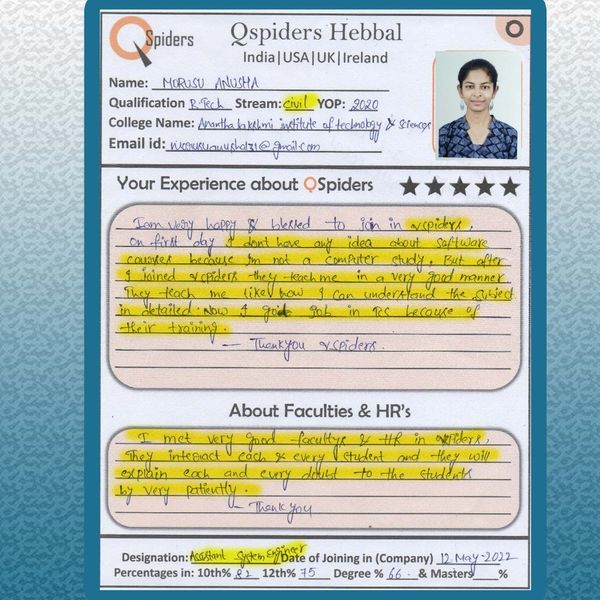 QSpiders
Qspiders Hebbal
India|USA|UK|Ireland
Name: MORUSU ANUSHA
Qualification B.Tech Stream: civil YOP: 2020
College Name: Anantha lakshmi institute of technology & Sciences
Email id: @gmail.com
Your Experience about QSpiders ★★★★★
I am very happy & blessed to join in Qspiders,
on first day I don't have any idea about software
courses because I'm not a computer study. But after
I joined Qspiders they teach me in a very good manner
They teach me like how I can understand the subject
in detailed. Now I got job in TCS because of
their training.
— Thankyou Qspiders.
About Faculties & HR's
I met very good facultys & HR in Qspiders,
They interact each & every student and they will
explain each and every doubt to the students
by very patiently.
— Thankyou
Designation: Assistant System Engineer Date of Joining in (Company) 12 May-2022
Percentages in: 10th% 82 12th% 75 Degree % 66 & Masters %